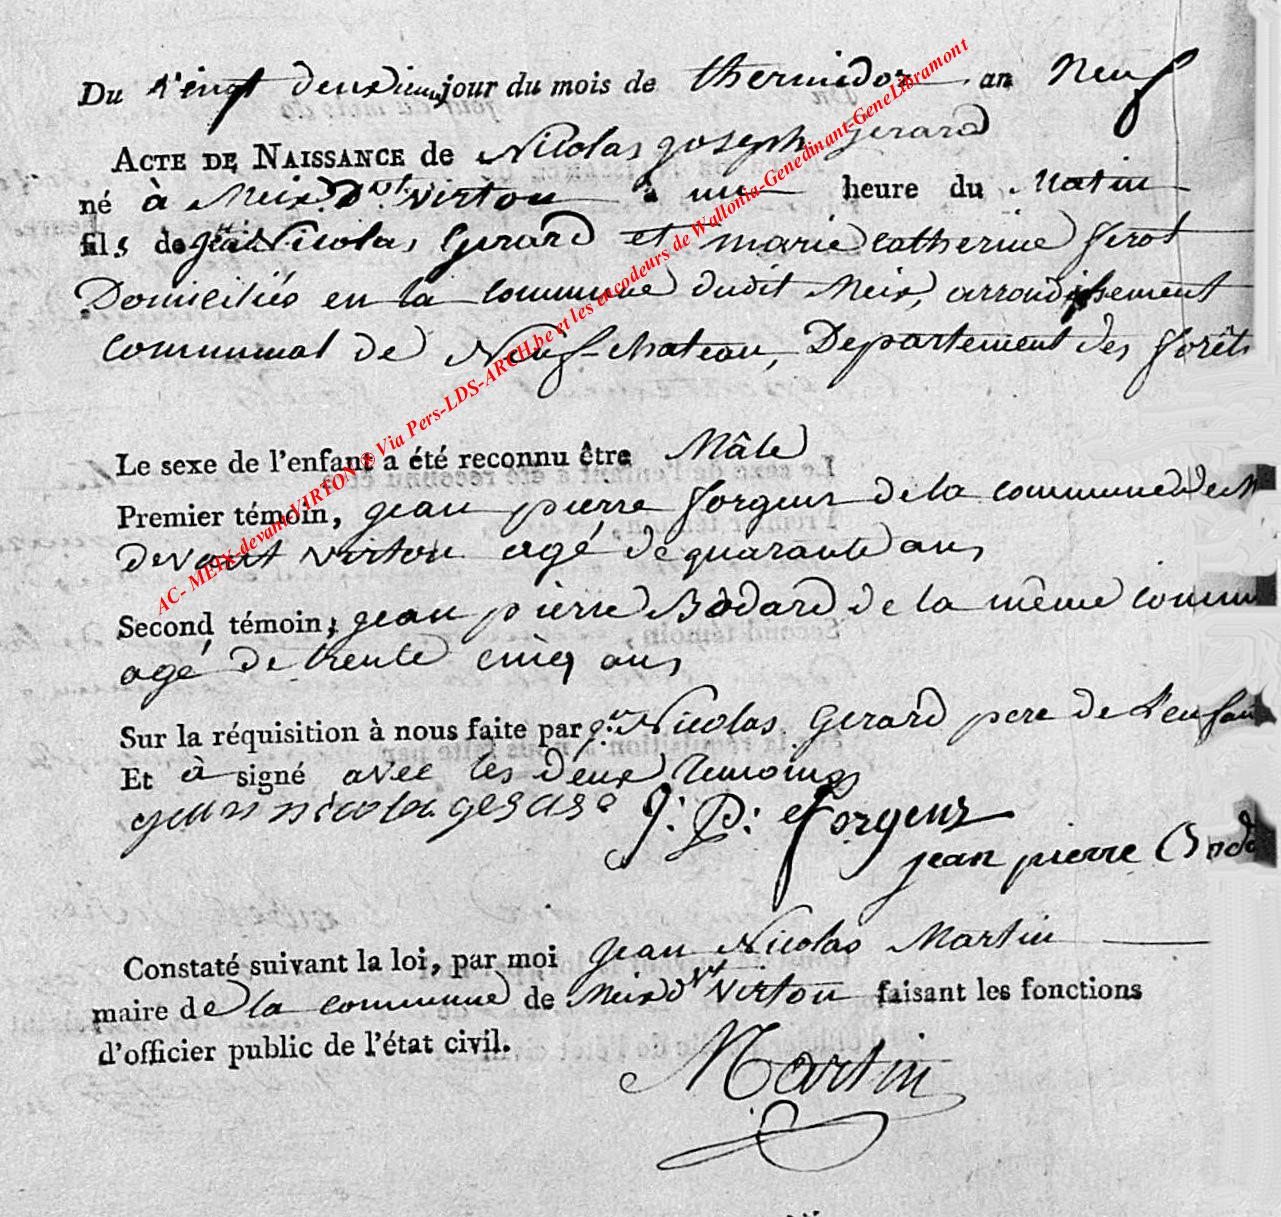 Du vingt deuxieme jour du mois de thermidor an neuf
ACTE DE NAISSANCE de Nicolas joseph gerard
né à Meix dvt. virton à une heure du Matin
fils de jean Nicolas Gerard et marie catherine
Domiciliés en la commune dudit Meix, arrondissement
communal de Neuf-chateau, Departement des forêts
Le sexe de l'enfant a été reconnu être Mâle
Premier témoin, jean pierre forgeur de la commune de M
devant virton agé de quarante ans
Second témoin, jean pierre Bodard de la même commu
agé de trente cinq ans
Sur la réquisition à nous faite par jn. Nicolas Gerard pere de l'enfant
Et à signé avec les deux temoins
jean nicolas gerard J: P: forgeur
jean pierre Boda
Constaté suivant la loi, par moi jean Nicolas Martin
maire de la commune de Meix dvt virton faisant les fonctions
d'officier public de l'état civil.
Martin
AC- MEIX-devant-VIRTON ® Via Pers-LDS-ARCH.be et les encodeurs de Wallonia-Genedinant-GeneLibramont